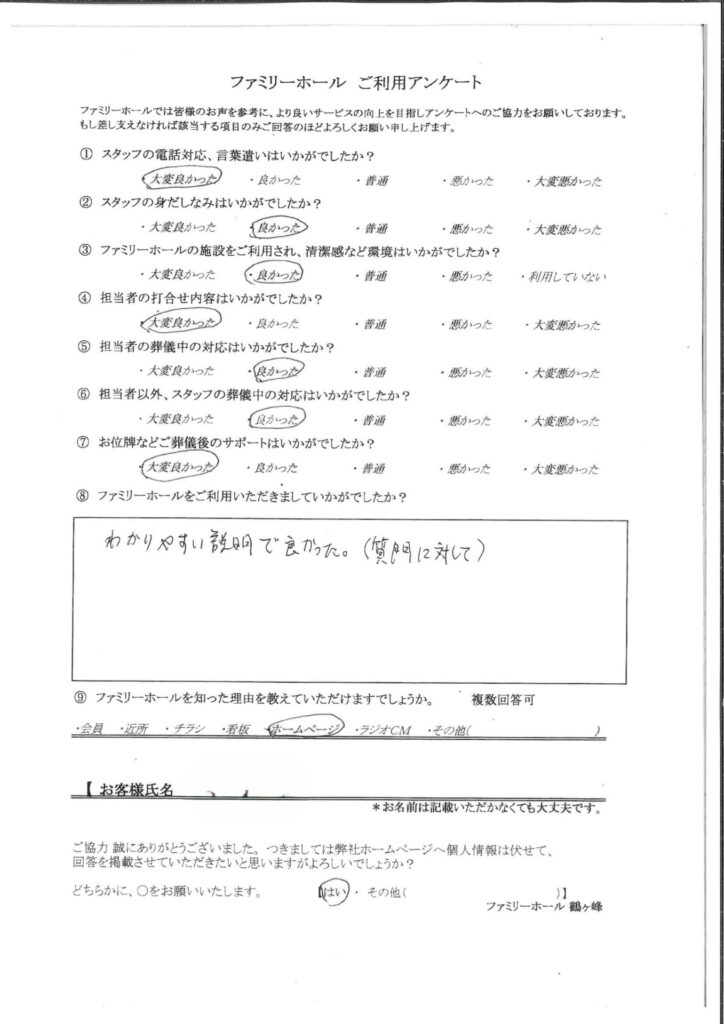 ファミリーホール ご利用アンケート
ファミリーホールでは皆様のお声を参考に、より良いサービスの向上を目指しアンケートへのご協力をお願いしております。
もし差し支えなければ該当する項目のみご回答のほどよろしくお願い申し上げます。
① スタッフの電話対応、言葉遣いはいかがでしたか？
・大変良かった ・良かった ・普通 ・悪かった ・大変悪かった
② スタッフの身だしなみはいかがでしたか？
・大変良かった ・良かった ・普通 ・悪かった ・大変悪かった
③ ファミリーホールの施設をご利用され、清潔感など環境はいかがでしたか？
・大変良かった ・良かった ・普通 ・悪かった ・利用していない
④ 担当者の打合せ内容はいかがでしたか？
・大変良かった ・良かった ・普通 ・悪かった ・大変悪かった
⑤ 担当者の葬儀中の対応はいかがでしたか？
・大変良かった ・良かった ・普通 ・悪かった ・大変悪かった
⑥ 担当者以外、スタッフの葬儀中の対応はいかがでしたか？
・大変良かった ・良かった ・普通 ・悪かった ・大変悪かった
⑦ お位牌などご葬儀後のサポートはいかがでしたか？
・大変良かった ・良かった ・普通 ・悪かった ・大変悪かった
⑧ ファミリーホールをご利用いただきましていかがでしたか？
わかりやすい説明で良かった。(質問に対して)
⑨ ファミリーホールを知った理由を教えていただけますでしょうか。 複数回答可
・会員 ・近所 ・チラシ ・看板 ・ホームページ ・ラジオCM ・その他( )
【 お客様氏名
＊お名前は記載いただかなくても大丈夫です。
ご協力 誠にありがとうございました。つきましては弊社ホームページへ個人情報は伏せて、
回答を掲載させていただきたいと思いますがよろしいでしょうか？
どちらかに、〇をお願いいたします。 【はい ・ その他( )】
ファミリーホール 鶴ヶ峰